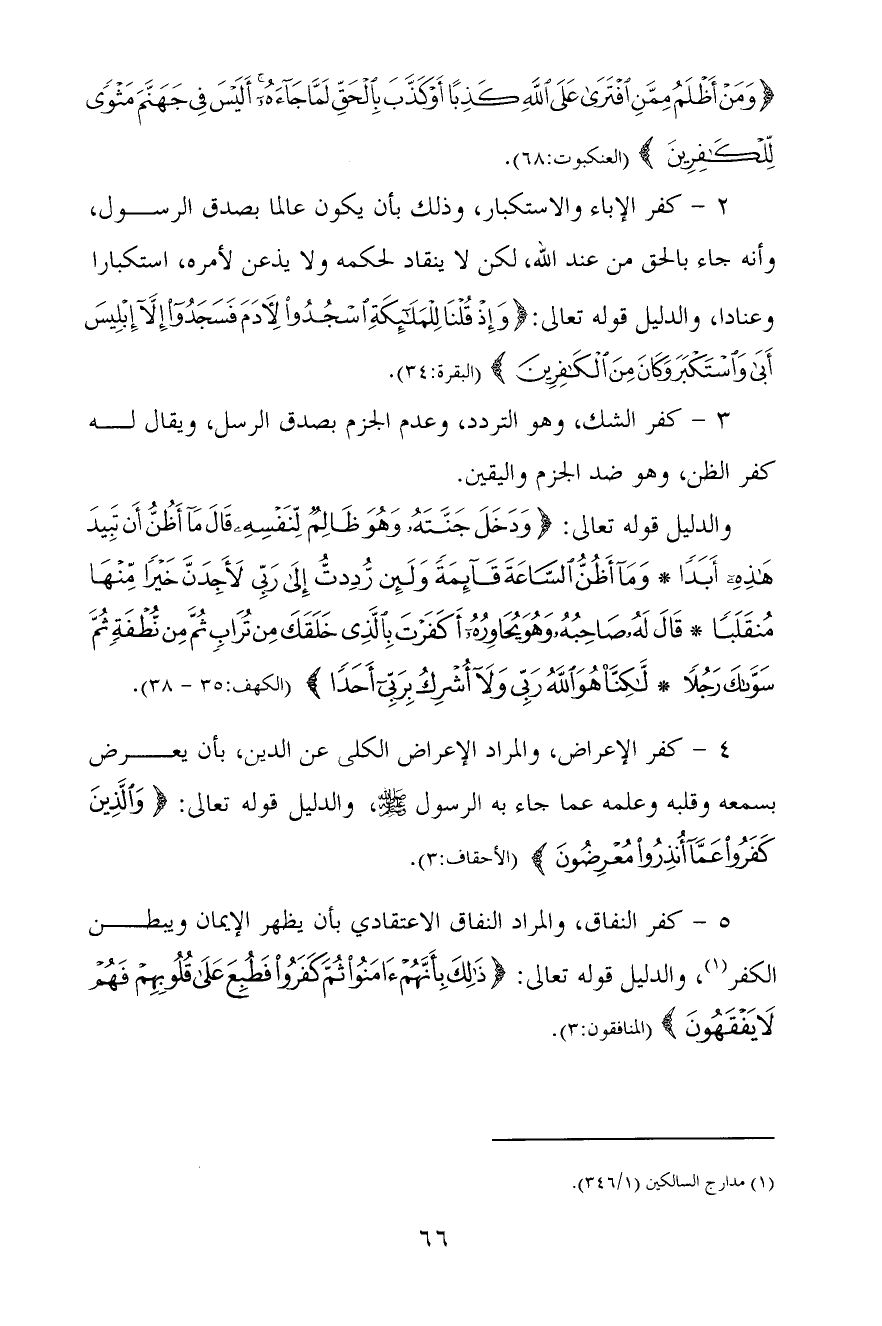 ﴿ وَمَنْ أَظْلَمُ مِمَّنِ ٱفْتَرَىٰ عَلَى ٱللَّهِ كَذِبًا أَوْ كَذَّبَ بِٱلْحَقِّ لَمَّا جَآءَهُۥٓ ۚ أَلَيْسَ فِى جَهَنَّمَ مَثْوًى
لِّلْكَـٰفِرِينَ ﴾ (العنكبوت:٦٨).
٢ – كفر الإباء والاستكبار، وذلك بأن يكون عالما بصدق الرسـول،
وأنه جاء بالحق من عند الله، لكن لا ينقاد لحكمه ولا يذعن لأمره، استكبارا
وعنادا، والدليل قوله تعالى: ﴿ وَإِذْ قُلْنَا لِلْمَلَـٰٓئِكَةِ ٱسْجُدُوا۟ لِـَٔادَمَ فَسَجَدُوٓا۟ إِلَّآ إِبْلِيسَ
أَبَىٰ وَٱسْتَكْبَرَ وَكَانَ مِنَ ٱلْكَـٰفِرِينَ ﴾ (البقرة:٣٤).
٣ – كفر الشك، وهو التردد، وعدم الجزم بصدق الرسل، ويقال لـه
كفر الظن، وهو ضد الجزم واليقين.
والدليل قوله تعالى: ﴿ وَدَخَلَ جَنَّتَهُۥ وَهُوَ ظَالِمٌ لِّنَفْسِهِۦ قَالَ مَآ أَظُنُّ أَن تَبِيدَ
هَـٰذِهِۦٓ أَبَدًا * وَمَآ أَظُنُّ ٱلسَّاعَةَ قَآئِمَةً وَلَئِن رُّدِدتُّ إِلَىٰ رَبِّى لَأَجِدَنَّ خَيْرًا مِّنْهَا
مُنقَلَبًا * قَالَ لَهُۥ صَاحِبُهُۥ وَهُوَ يُحَاوِرُهُۥٓ أَكَفَرْتَ بِٱلَّذِى خَلَقَكَ مِن تُرَابٍ ثُمَّ مِن نُّطْفَةٍ ثُمَّ
سَوَّىٰكَ رَجُلًا * لَّـٰكِنَّا۠ هُوَ ٱللَّهُ رَبِّى وَلَآ أُشْرِكُ بِرَبِّىٓ أَحَدًا ﴾ (الكهف:٣٥ – ٣٨).
٤ – كفر الإعراض، والمراد الإعراض الكلى عن الدين، بأن يعـرض
بسمعه وقلبه وعلمه عما جاء به الرسول ﷺ، والدليل قوله تعالى: ﴿ وَٱلَّذِينَ
كَفَرُوا۟ عَمَّآ أُنذِرُوا۟ مُعْرِضُونَ ﴾ (الأحقاف:٣).
٥ – كفر النفاق، والمراد النفاق الاعتقادي بأن يظهر الإيمان ويبطـن
الكفر(١)، والدليل قوله تعالى: ﴿ ذَٰلِكَ بِأَنَّهُمْ ءَامَنُوا۟ ثُمَّ كَفَرُوا۟ فَطُبِعَ عَلَىٰ قُلُوبِهِمْ فَهُمْ
لَا يَفْقَهُونَ ﴾ (المنافقون:٣).
(١) مدارج السالكين (٣٤٦/١).
٦٦